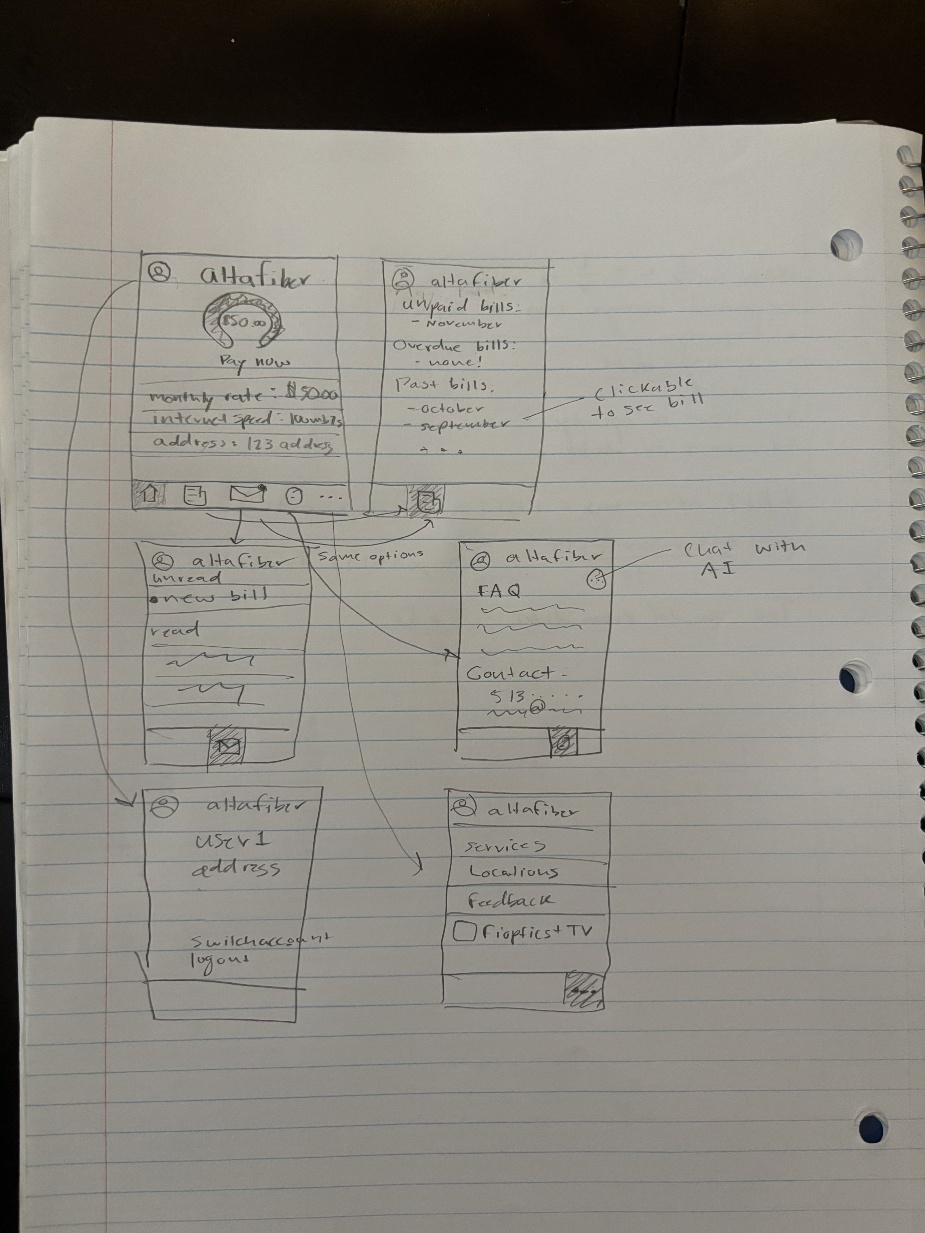 altafiber
$50.00
Pay now
monthly rate: $50.00
internet speed: 100mb/s
address: 123 address
...
altafiber
unpaid bills:
- November
Overdue bills:
- none!
Past bills:
- october
- september
...
Clickable
to see bill
altafiber
unread
• new bill
read
Same options
altafiber
FAQ
Contact -
513.....
@
Chat with
AI
altafiber
user 1
address
switch account
logout
altafiber
services
Locations
Feedback
Fioptics+ TV
...